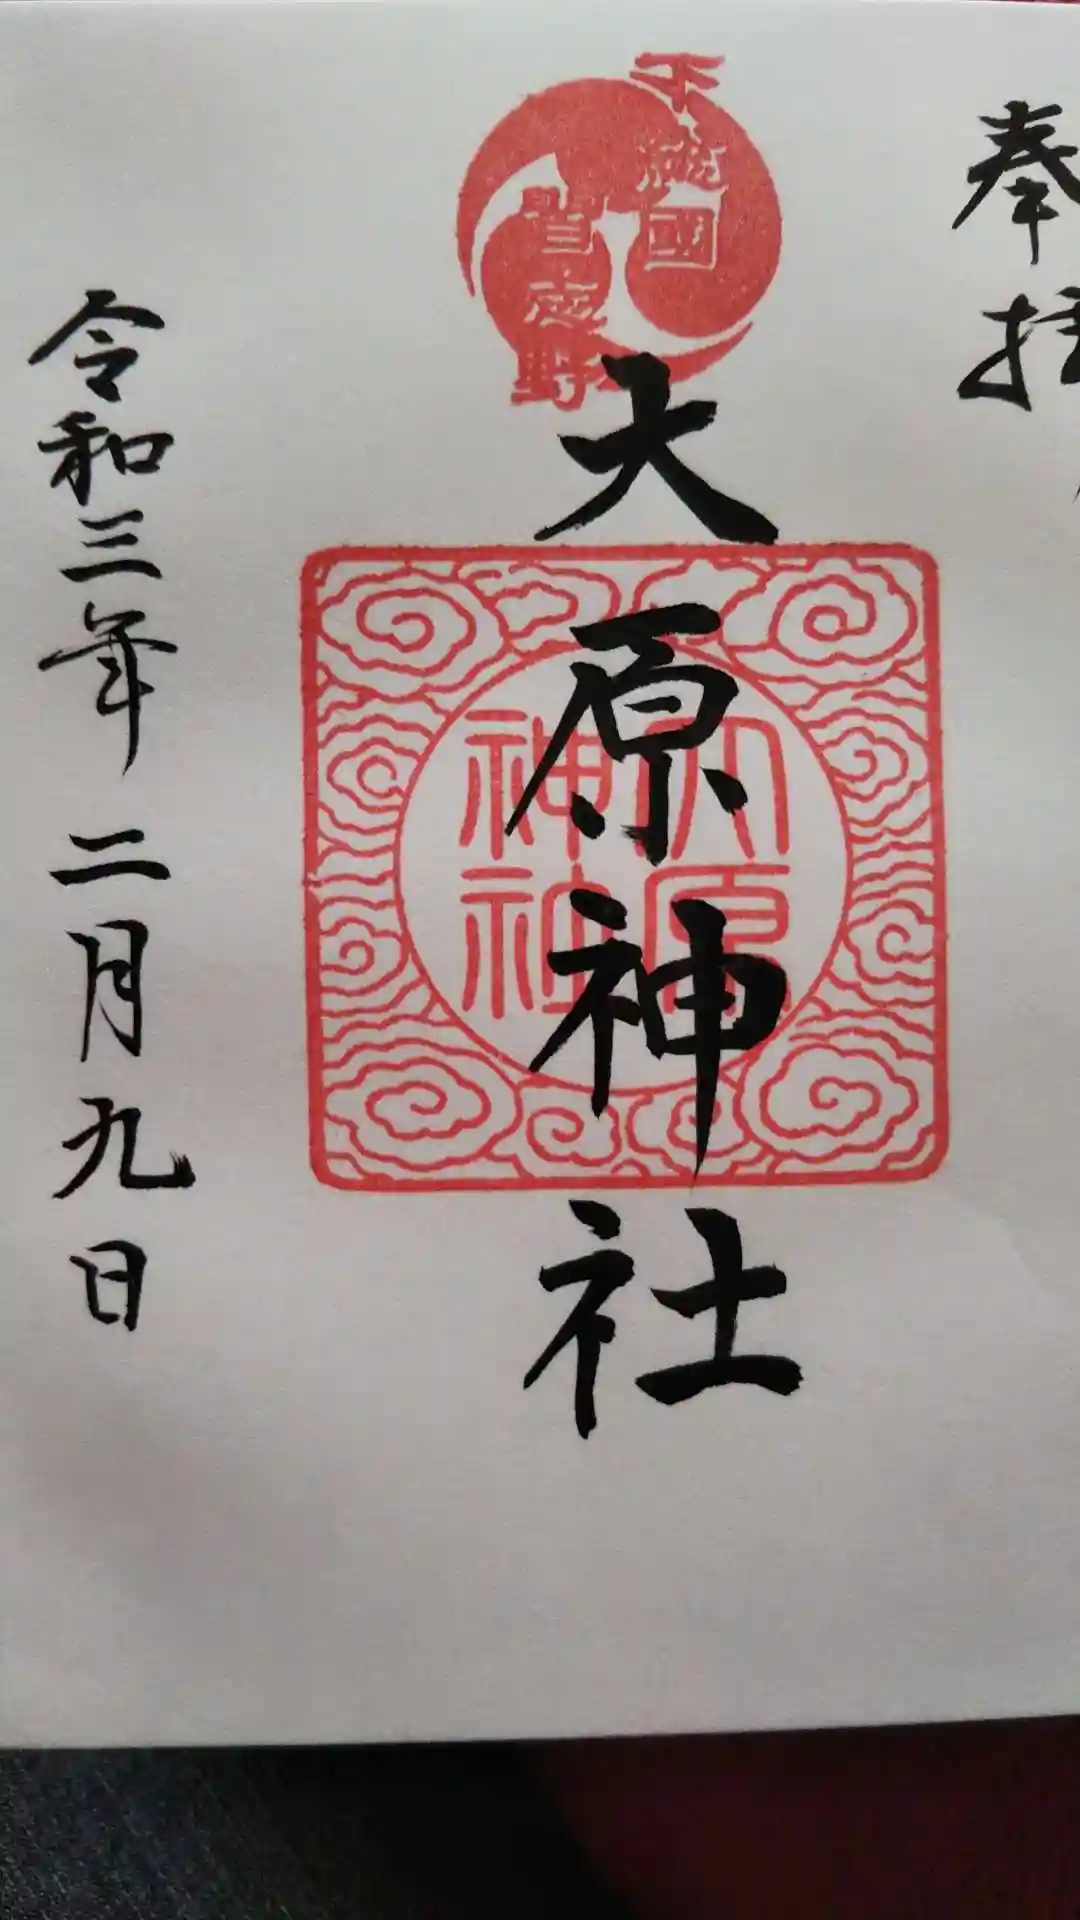 奉拝
下総國
習志野
大原神社
大原
神社
令和三年二月九日